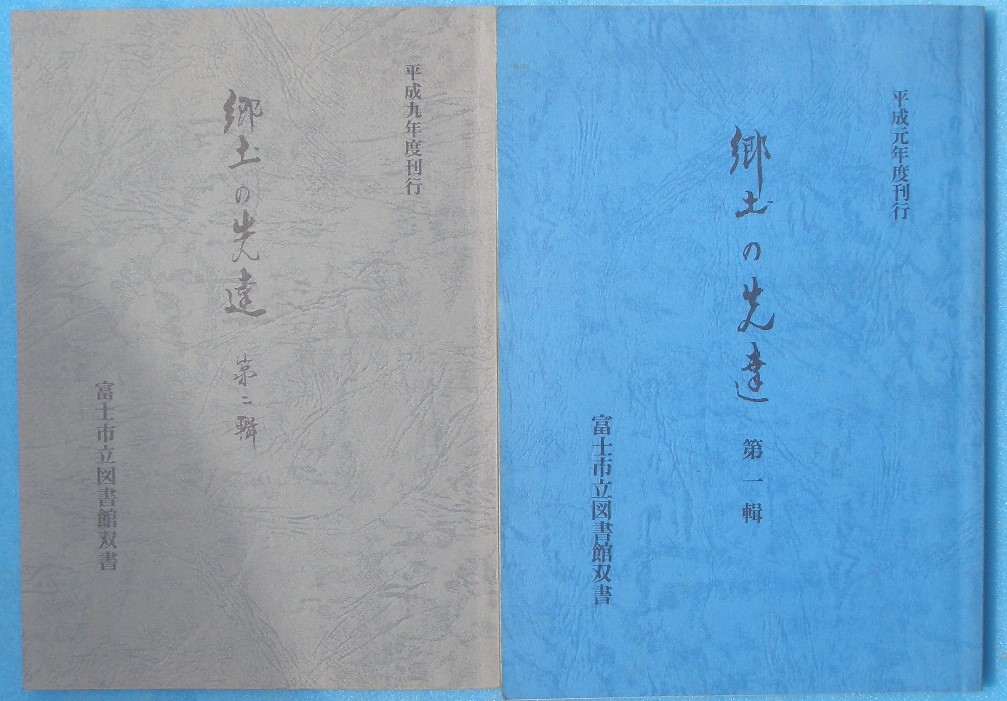 平成元年度刊行
郷土の先達 第一輯
富士市立図書館双書
平成九年度刊行
郷土の先達 第二輯
富士市立図書館双書